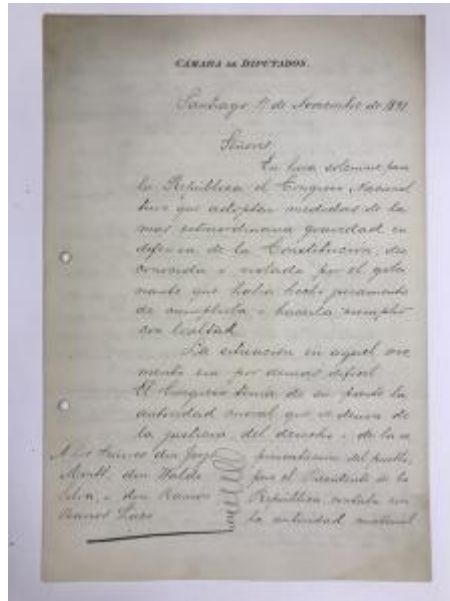 CÁMARA DE DIPUTADOS.
Santiago 9 de Noviembre de 1891
Señores
En hora solemne para
la República el Congreso Nacional
tuvo que adoptar medidas de la
mas estraordinaria gravedad en
defensa de la Constitucion, des
conocida i violada por el gober
nante que habia hecho juramento
de cumplirla i hacerla cumplir
con lealtad.
La situacion en aquel mo
mento era por demas dificil
El Congreso tenia de su parte la
autoridad moral que se deriva de
la justicia, del derecho i de la re
presentacion del pueblo,
pero el Presidente de la
República contaba con
la autoridad material
A los Señores don Jorje
Montt, don Waldo
Silva, i don Ramon
Barros Luco